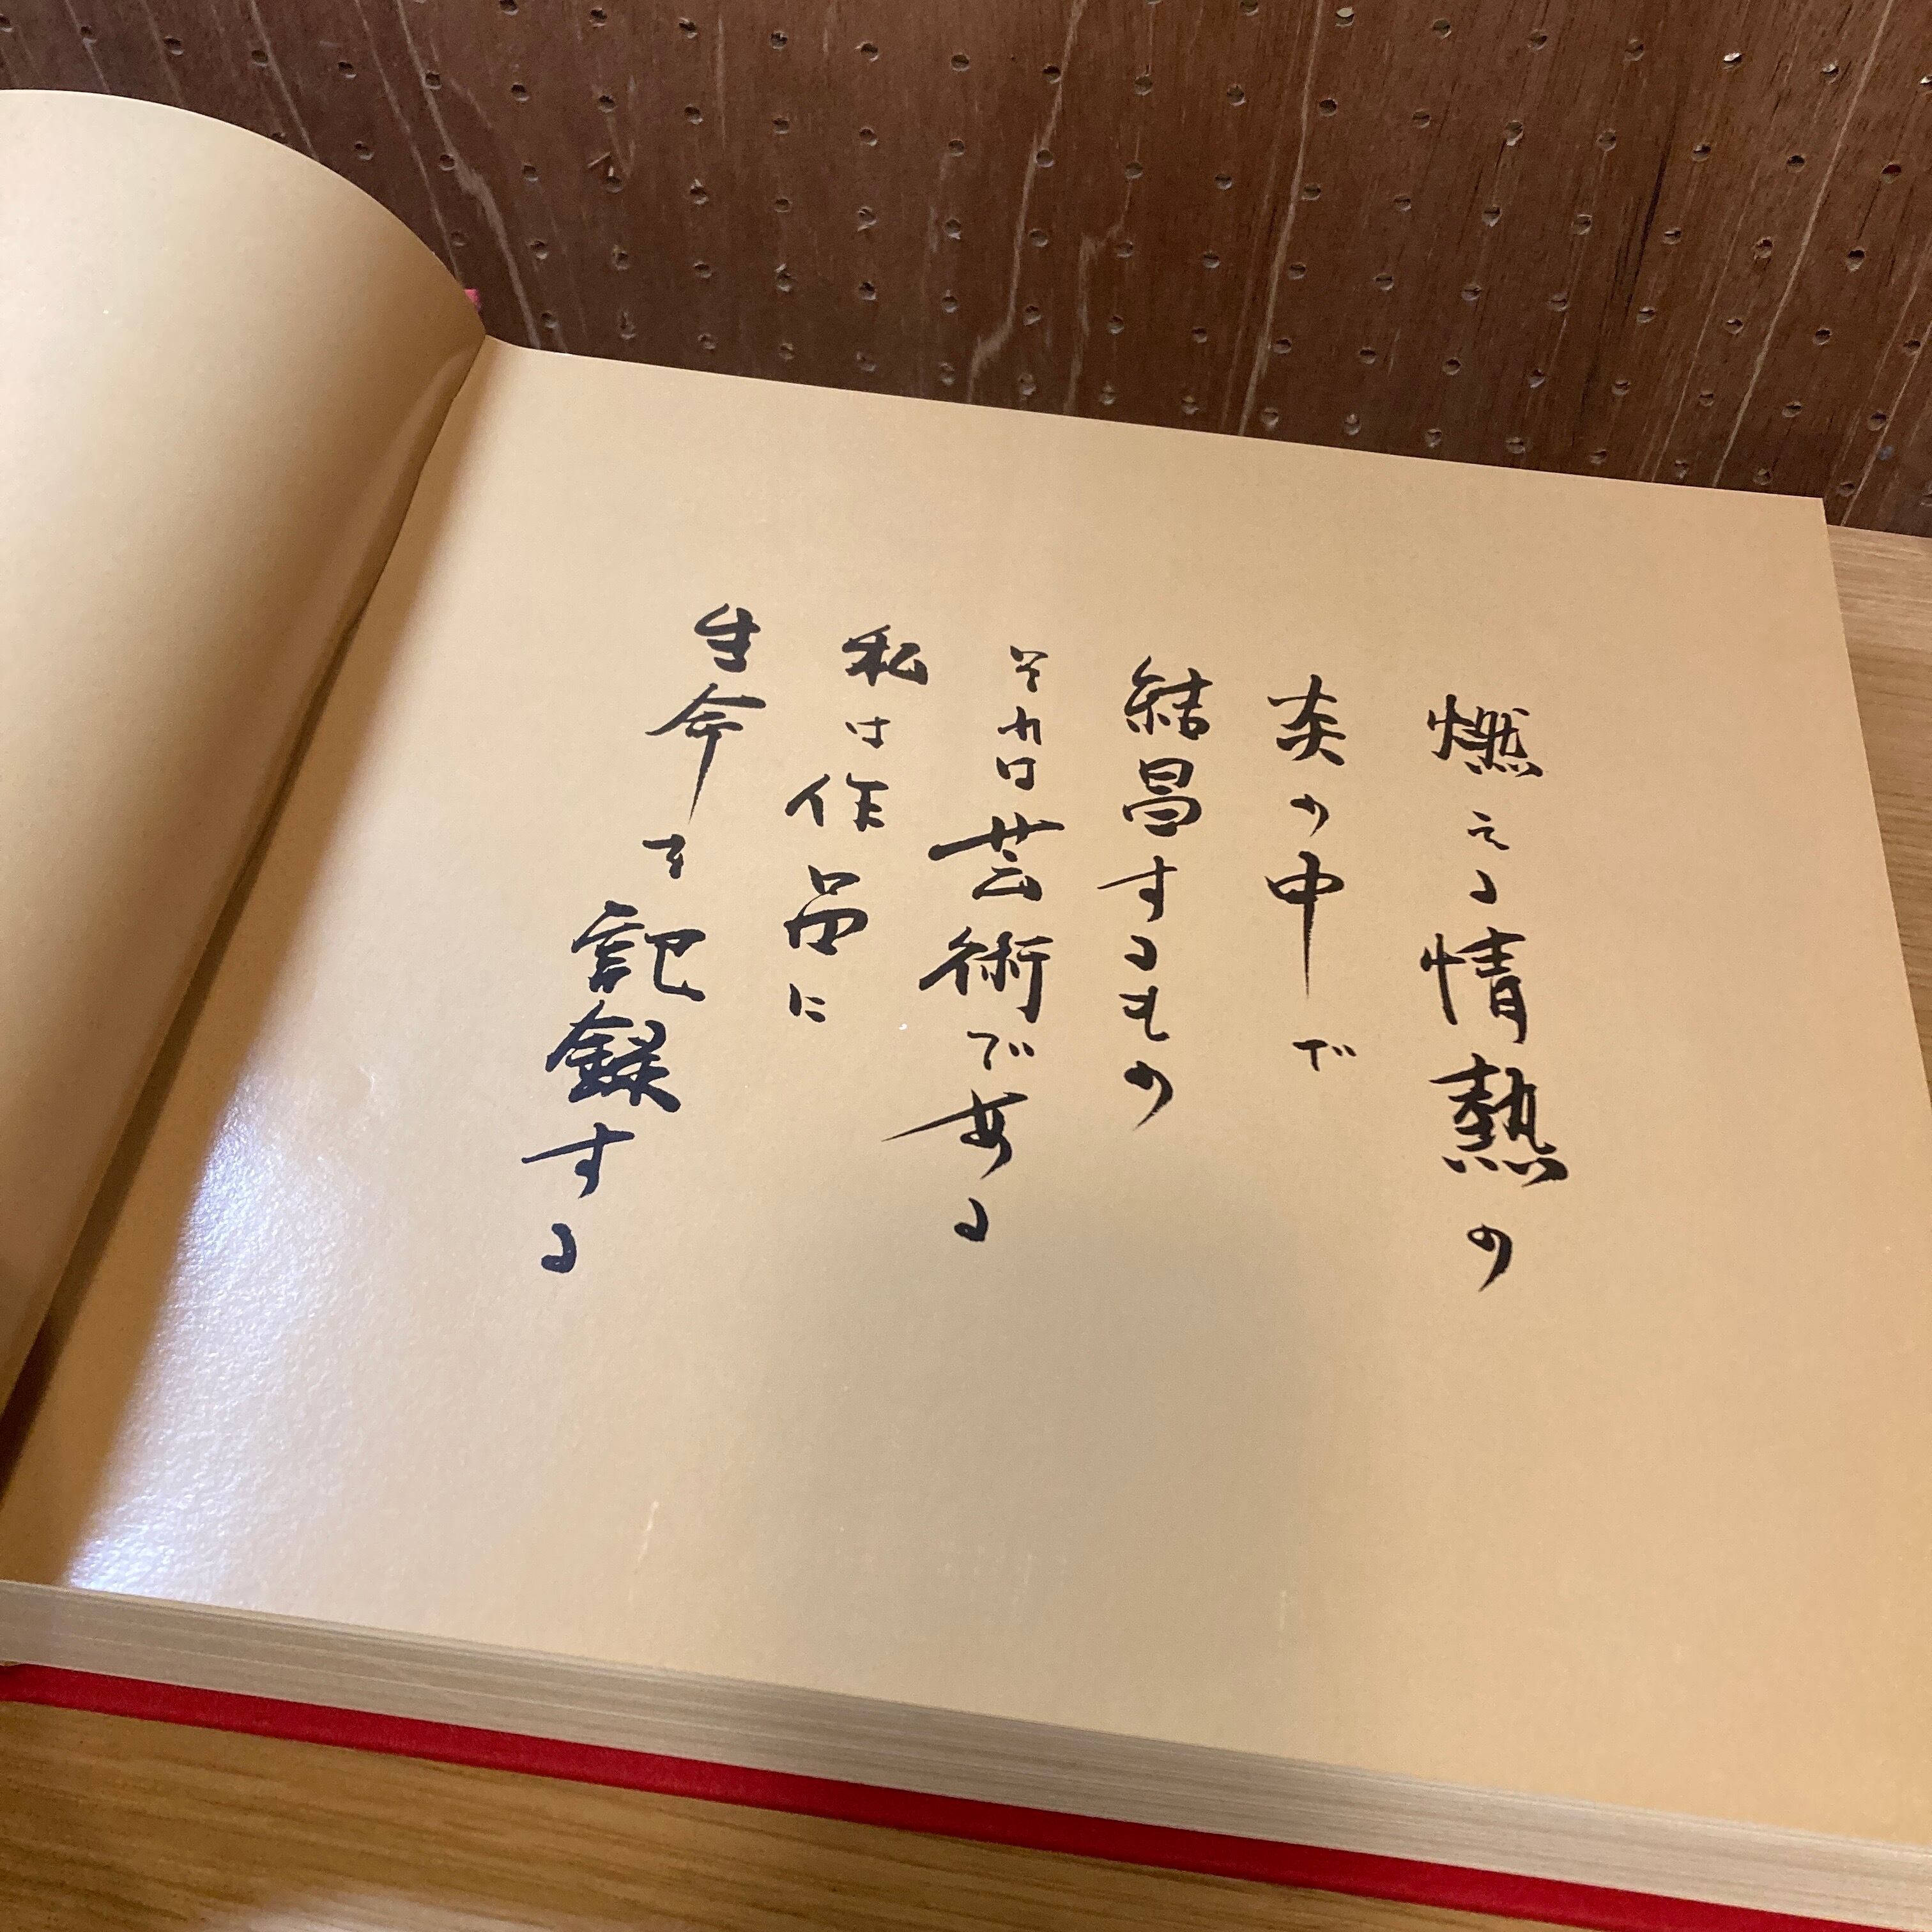 燃える情熱の
炎の中で
結晶するもの
それは芸術である
私は作品に
生命を記録する